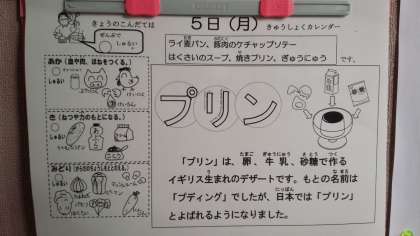 きょうのこんだては
５日（月）
きゅうしょくカレンダー
ぜんぶで
しゅるい
ライ麦パン、豚肉のケチャップソテー
はくさいのスープ、焼きプリン、ぎゅうにゅう
です。
あか（血や肉、ほねをつくる。）
しゅるい
き（ねつや力のもとになる。）
しゅるい
みどり
しゅるい
プリン
「プリン」は、卵、牛乳、砂糖で作る
イギリス生まれのデザートです。もとの名前は
「プディング」でしたが、日本では「プリン」
とよばれるようになりました。